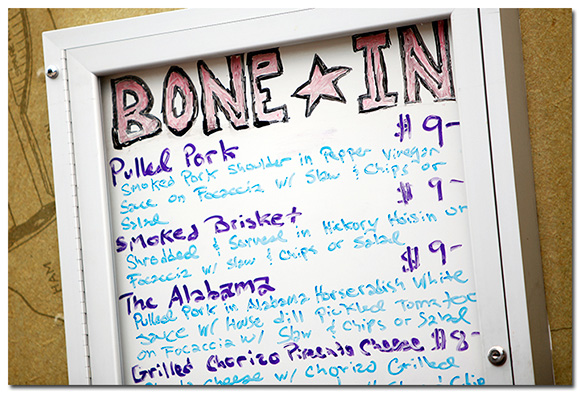 BONE ★ IN
Pulled Pork $9-
Smoked Pork Shoulder in Pepper Vinegar
Sauce on Focaccia w/ Slaw & Chips or
Salad
Smoked Brisket $9-
Shredded & Served in Hickory Hoisin on
Focaccia w/ Slaw & Chips or Salad
The Alabama $9-
Pulled Pork in Alabama Horseradish White
Sauce w/ House dill Pickled Tomatoe
on Focaccia w/ Slaw & Chips or Salad
Grilled Chorizo Pimento Cheese $8-
Cheese w/ Chorizo Grilled